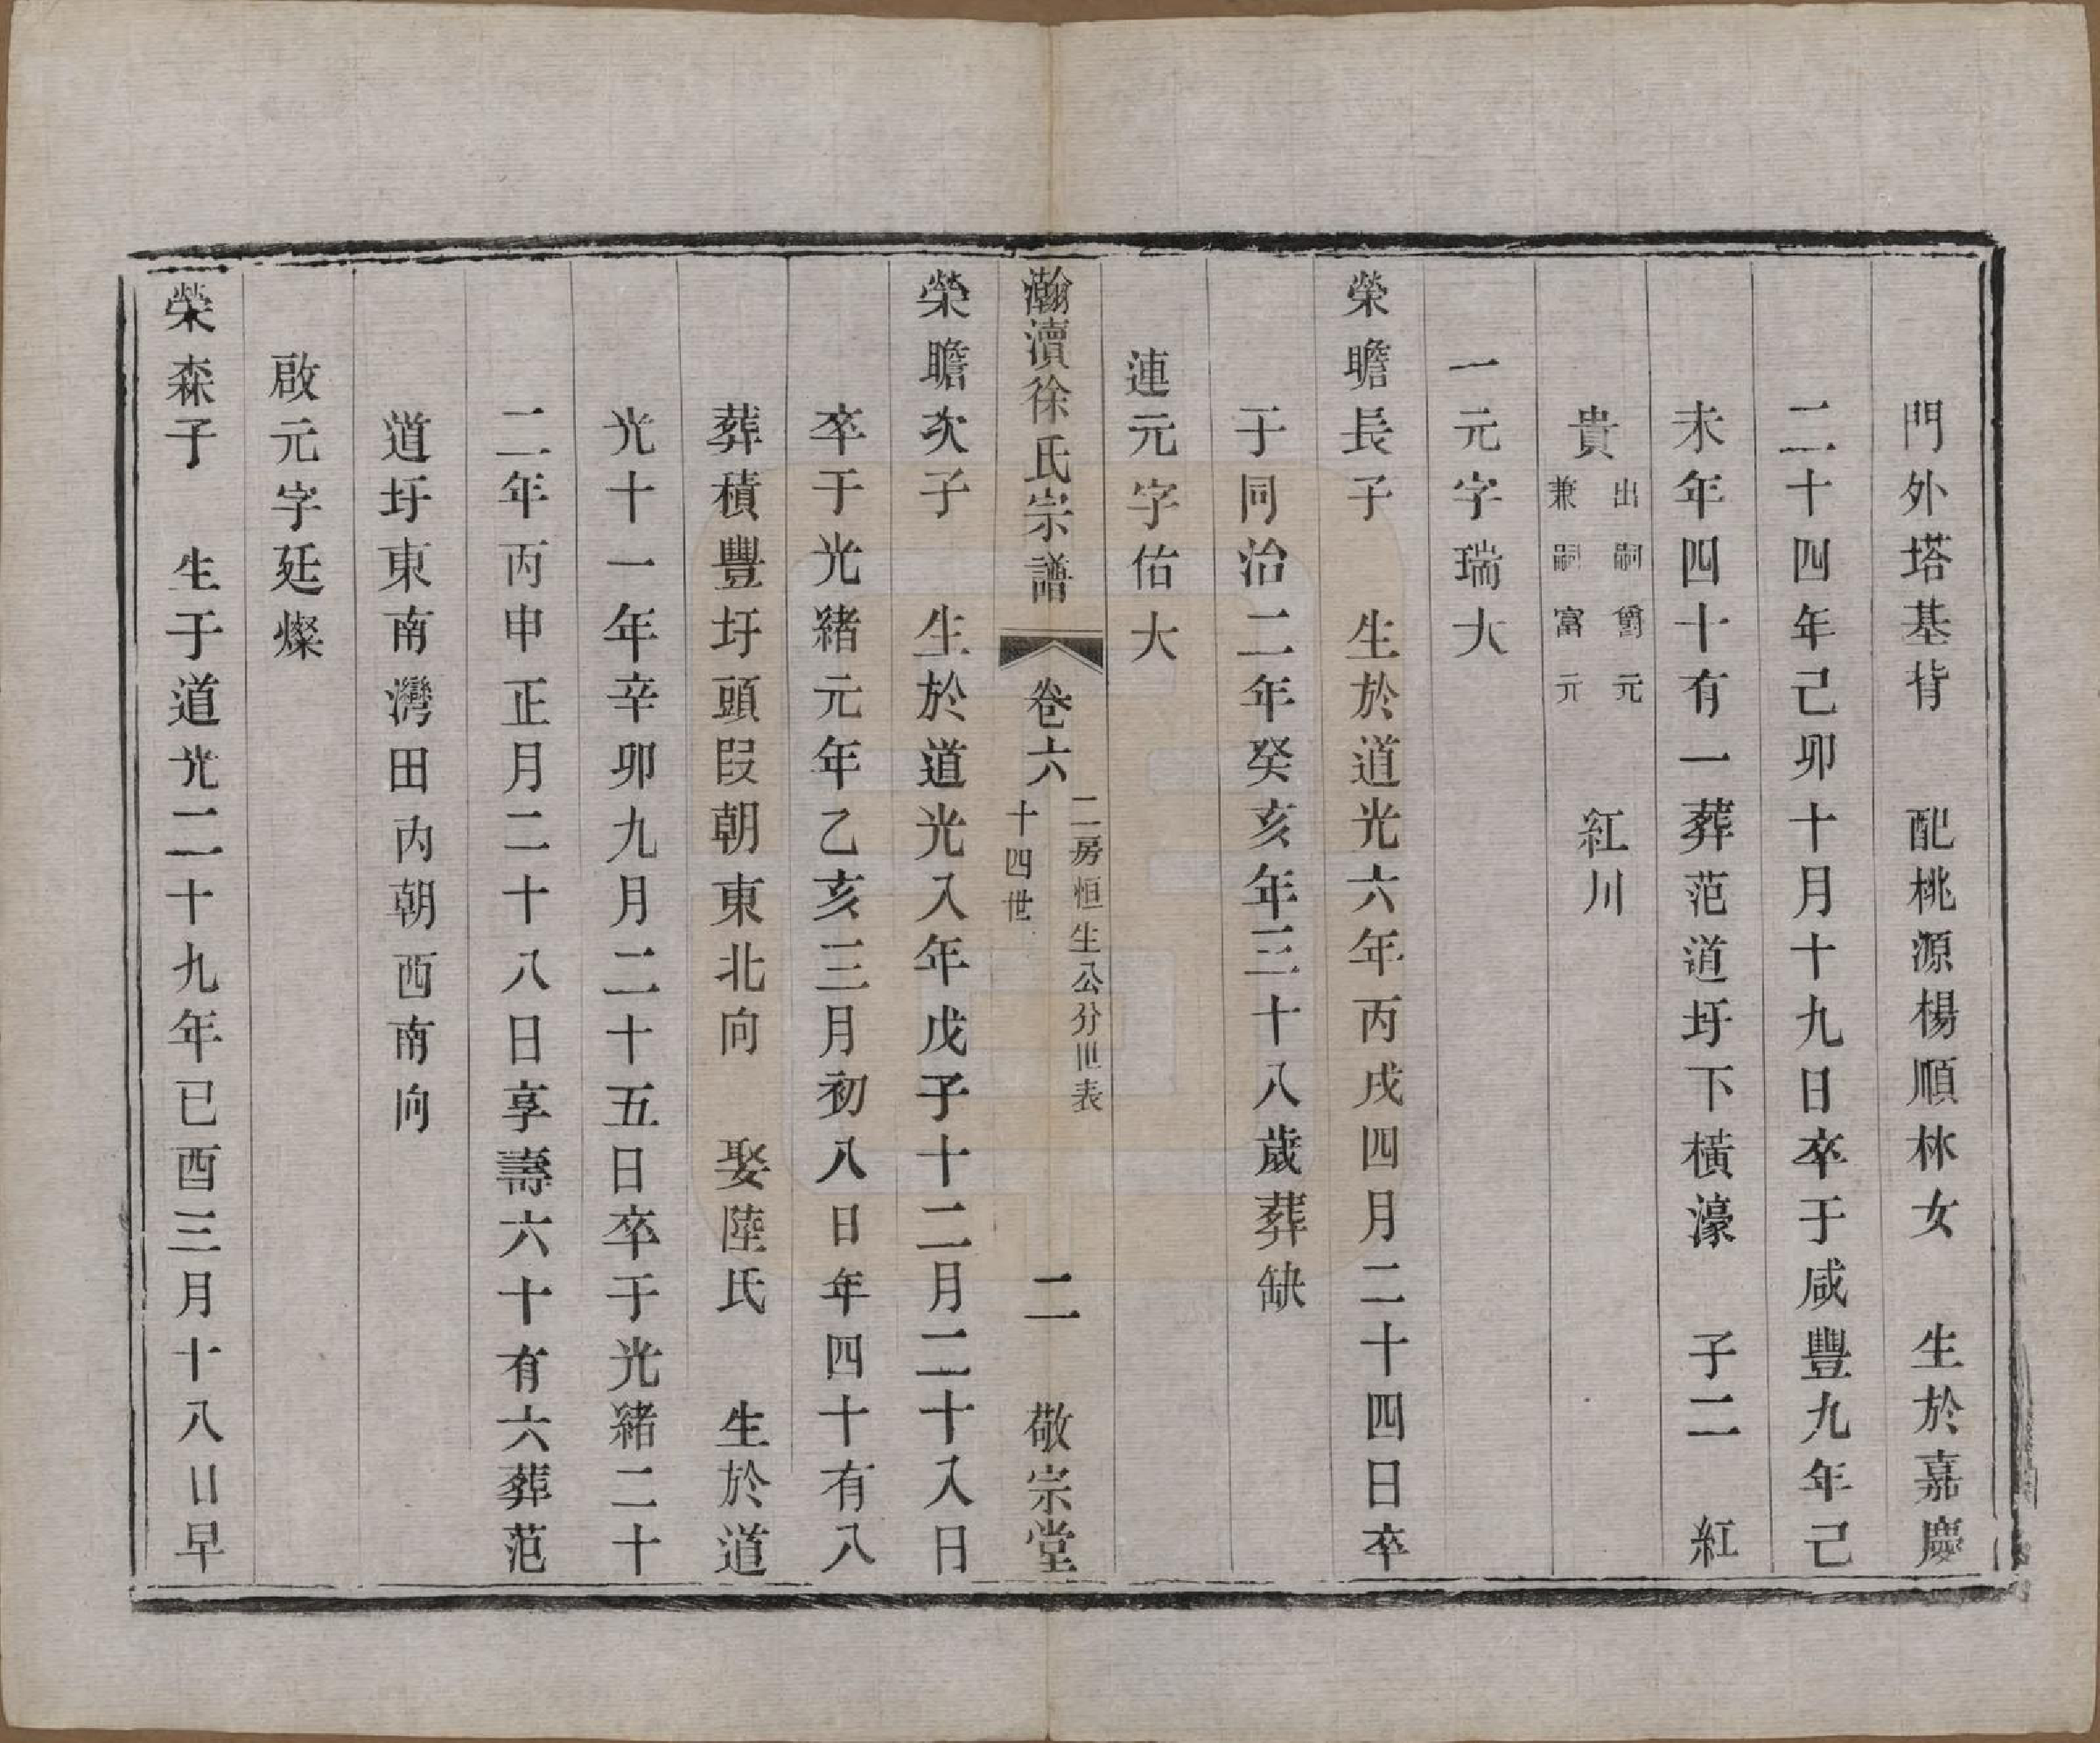 門外塔基背　配桃源楊順林女　生於嘉慶
二十四年己卯十月十九日卒于咸豐九年己
未年四十有一葬范道圩下橫濠　子二　紅
貴 出嗣舊元 兼嗣富元　紅川
一元字瑞大
榮瞻長子　生於道光六年丙戌四月二十四日卒
于同治二年癸亥年三十八歲葬缺
連元字佑大
瀚瀆徐氏宗譜　卷六　二房恒生公分世表 十四世　二　敬宗堂
榮瞻次子　生於道光八年戊子十二月二十八日
卒于光緒元年乙亥三月初八日年四十有八
葬積豐圩頭叚朝東北向　娶陸氏　生於道
光十一年辛卯九月二十五日卒于光緒二十
二年丙申正月二十八日享壽六十有六葬范
道圩東南灣田內朝西南向
啟元字延燦
榮森子　生于道光二十九年已酉三月十八日早